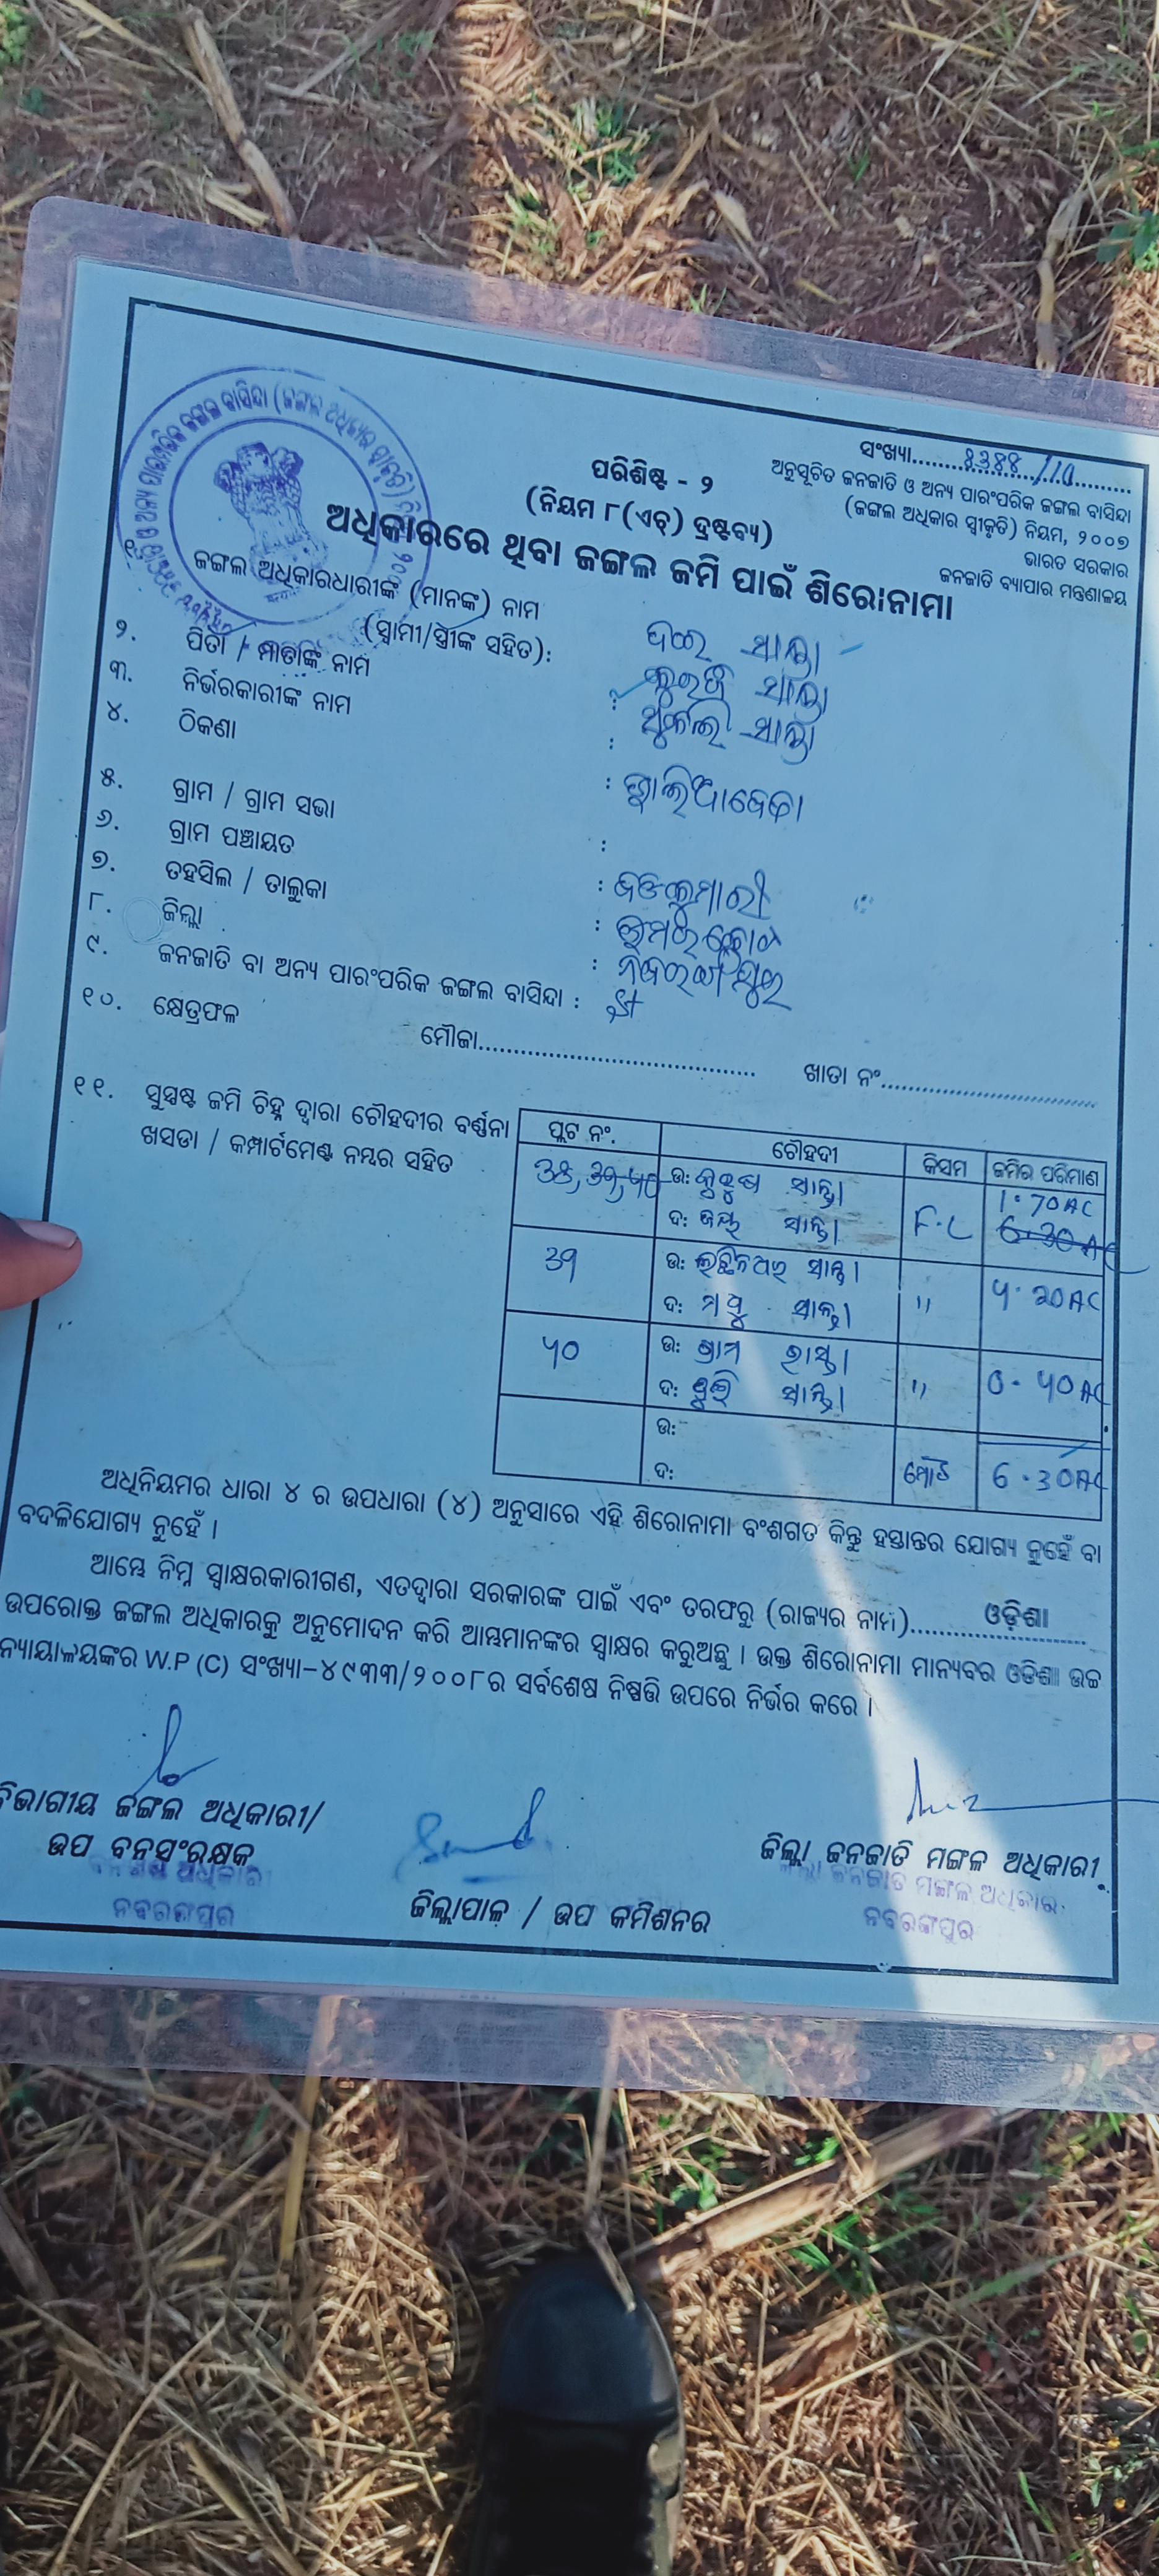 ସଂଖ୍ୟା................ /10
ଅନୁସୂଚିତ ଜନଜାତି ଓ ଅନ୍ୟ ପାରଂପରିକ ଜଙ୍ଗଲ ବାସିନ୍ଦା
(ଜଙ୍ଗଲ ଅଧିକାର ସ୍ୱୀକୃତି) ନିୟମ, ୨୦୦୭
ଭାରତ ସରକାର
ଜନଜାତି ବ୍ୟାପାର ମନ୍ତ୍ରଣାଳୟ
ପରିଶିଷ୍ଟ - ୨
(ନିୟମ ୮(ଏଚ୍) ଦ୍ରଷ୍ଟବ୍ୟ)
ଅଧିକାରରେ ଥିବା ଜଙ୍ଗଲ ଜମି ପାଇଁ ଶିରୋନାମା
୧. ଜଙ୍ଗଲ ଅଧିକାରଧାରୀଙ୍କ (ମାନଙ୍କ) ନାମ
(ସ୍ୱାମୀ/ସ୍ତ୍ରୀଙ୍କ ସହିତ): ସାନ୍ତା
୨. ପିତା / ମାତାଙ୍କ ନାମ : ସାନ୍ତା
୩. ନିର୍ଭରକାରୀଙ୍କ ନାମ : ସାନ୍ତା
୪. ଠିକଣା :
୫. ଗ୍ରାମ / ଗ୍ରାମ ସଭା :
୬. ଗ୍ରାମ ପଞ୍ଚାୟତ : ବଡକୁମାରୀ
୭. ତହସିଲ / ତାଲୁକା : ଉମରକୋଟ
୮. ଜିଲ୍ଲା : ନବରଙ୍ଗପୁର
୯. ଜନଜାତି ବା ଅନ୍ୟ ପାରଂପରିକ ଜଙ୍ଗଲ ବାସିନ୍ଦା : St
୧୦. କ୍ଷେତ୍ରଫଳ ମୌଜା................ ଖାତା ନଂ................
୧୧. ସୁସ୍ପଷ୍ଟ ଜମି ଚିହ୍ନ ଦ୍ୱାରା ଚୌହଦୀର ବର୍ଣ୍ଣନା
ଖସଡା / କମ୍ପାର୍ଟମେଣ୍ଟ ନମ୍ବର ସହିତ
ପ୍ଲଟ ନଂ. ଚୌହଦୀ କିସମ ଜମିର ପରିମାଣ
ଉ: ସାନ୍ତା 1.70 AC
ଦ: ସାନ୍ତା F.C 6.30 AC
39 ଉ: ସାନ୍ତା
ଦ: ମଧୁ ସାନ୍ତା " 4.20 AC
40 ଉ: ଗ୍ରାମ ରାସ୍ତା
ଦ: ସାନ୍ତା " 0.40 AC
ଉ:
ଦ: ମୋଟ 6.30 AC
ଅଧିନିୟମର ଧାରା ୪ ର ଉପଧାରା (୪) ଅନୁସାରେ ଏହି ଶିରୋନାମା ବଂଶଗତ କିନ୍ତୁ ହସ୍ତାନ୍ତର ଯୋଗ୍ୟ ନୁହେଁ ବା
ବଦଳିଯୋଗ୍ୟ ନୁହେଁ ।
ଆମ୍ଭେ ନିମ୍ନ ସ୍ୱାକ୍ଷରକାରୀଗଣ, ଏତଦ୍ୱାରା ସରକାରଙ୍କ ପାଇଁ ଏବଂ ତରଫରୁ (ରାଜ୍ୟର ନାମ)........ଓଡ଼ିଶା........
ଉପରୋକ୍ତ ଜଙ୍ଗଲ ଅଧିକାରକୁ ଅନୁମୋଦନ କରି ଆମ୍ଭମାନଙ୍କର ସ୍ୱାକ୍ଷର କରୁଅଛୁ । ଉକ୍ତ ଶିରୋନାମା ମାନ୍ୟବର ଓଡ଼ିଶା ଉଚ୍ଚ
ନ୍ୟାୟାଳୟଙ୍କର W.P (C) ସଂଖ୍ୟା–୪୯୩୩/୨୦୦୮ ର ସର୍ବଶେଷ ନିଷ୍ପତ୍ତି ଉପରେ ନିର୍ଭର କରେ ।
ବିଭାଗୀୟ ଜଙ୍ଗଲ ଅଧିକାରୀ/
ଉପ ବନସଂରକ୍ଷକ
ନବରଙ୍ଗପୁର
ଜିଲ୍ଲାପାଳ / ଉପ କମିଶନର
ଜିଲ୍ଲା ଜନଜାତି ମଙ୍ଗଳ ଅଧିକାରୀ
ଜିଲ୍ଲା ଜନଜାତି ମଙ୍ଗଳ ଅଧିକାରୀ
ନବରଙ୍ଗପୁର